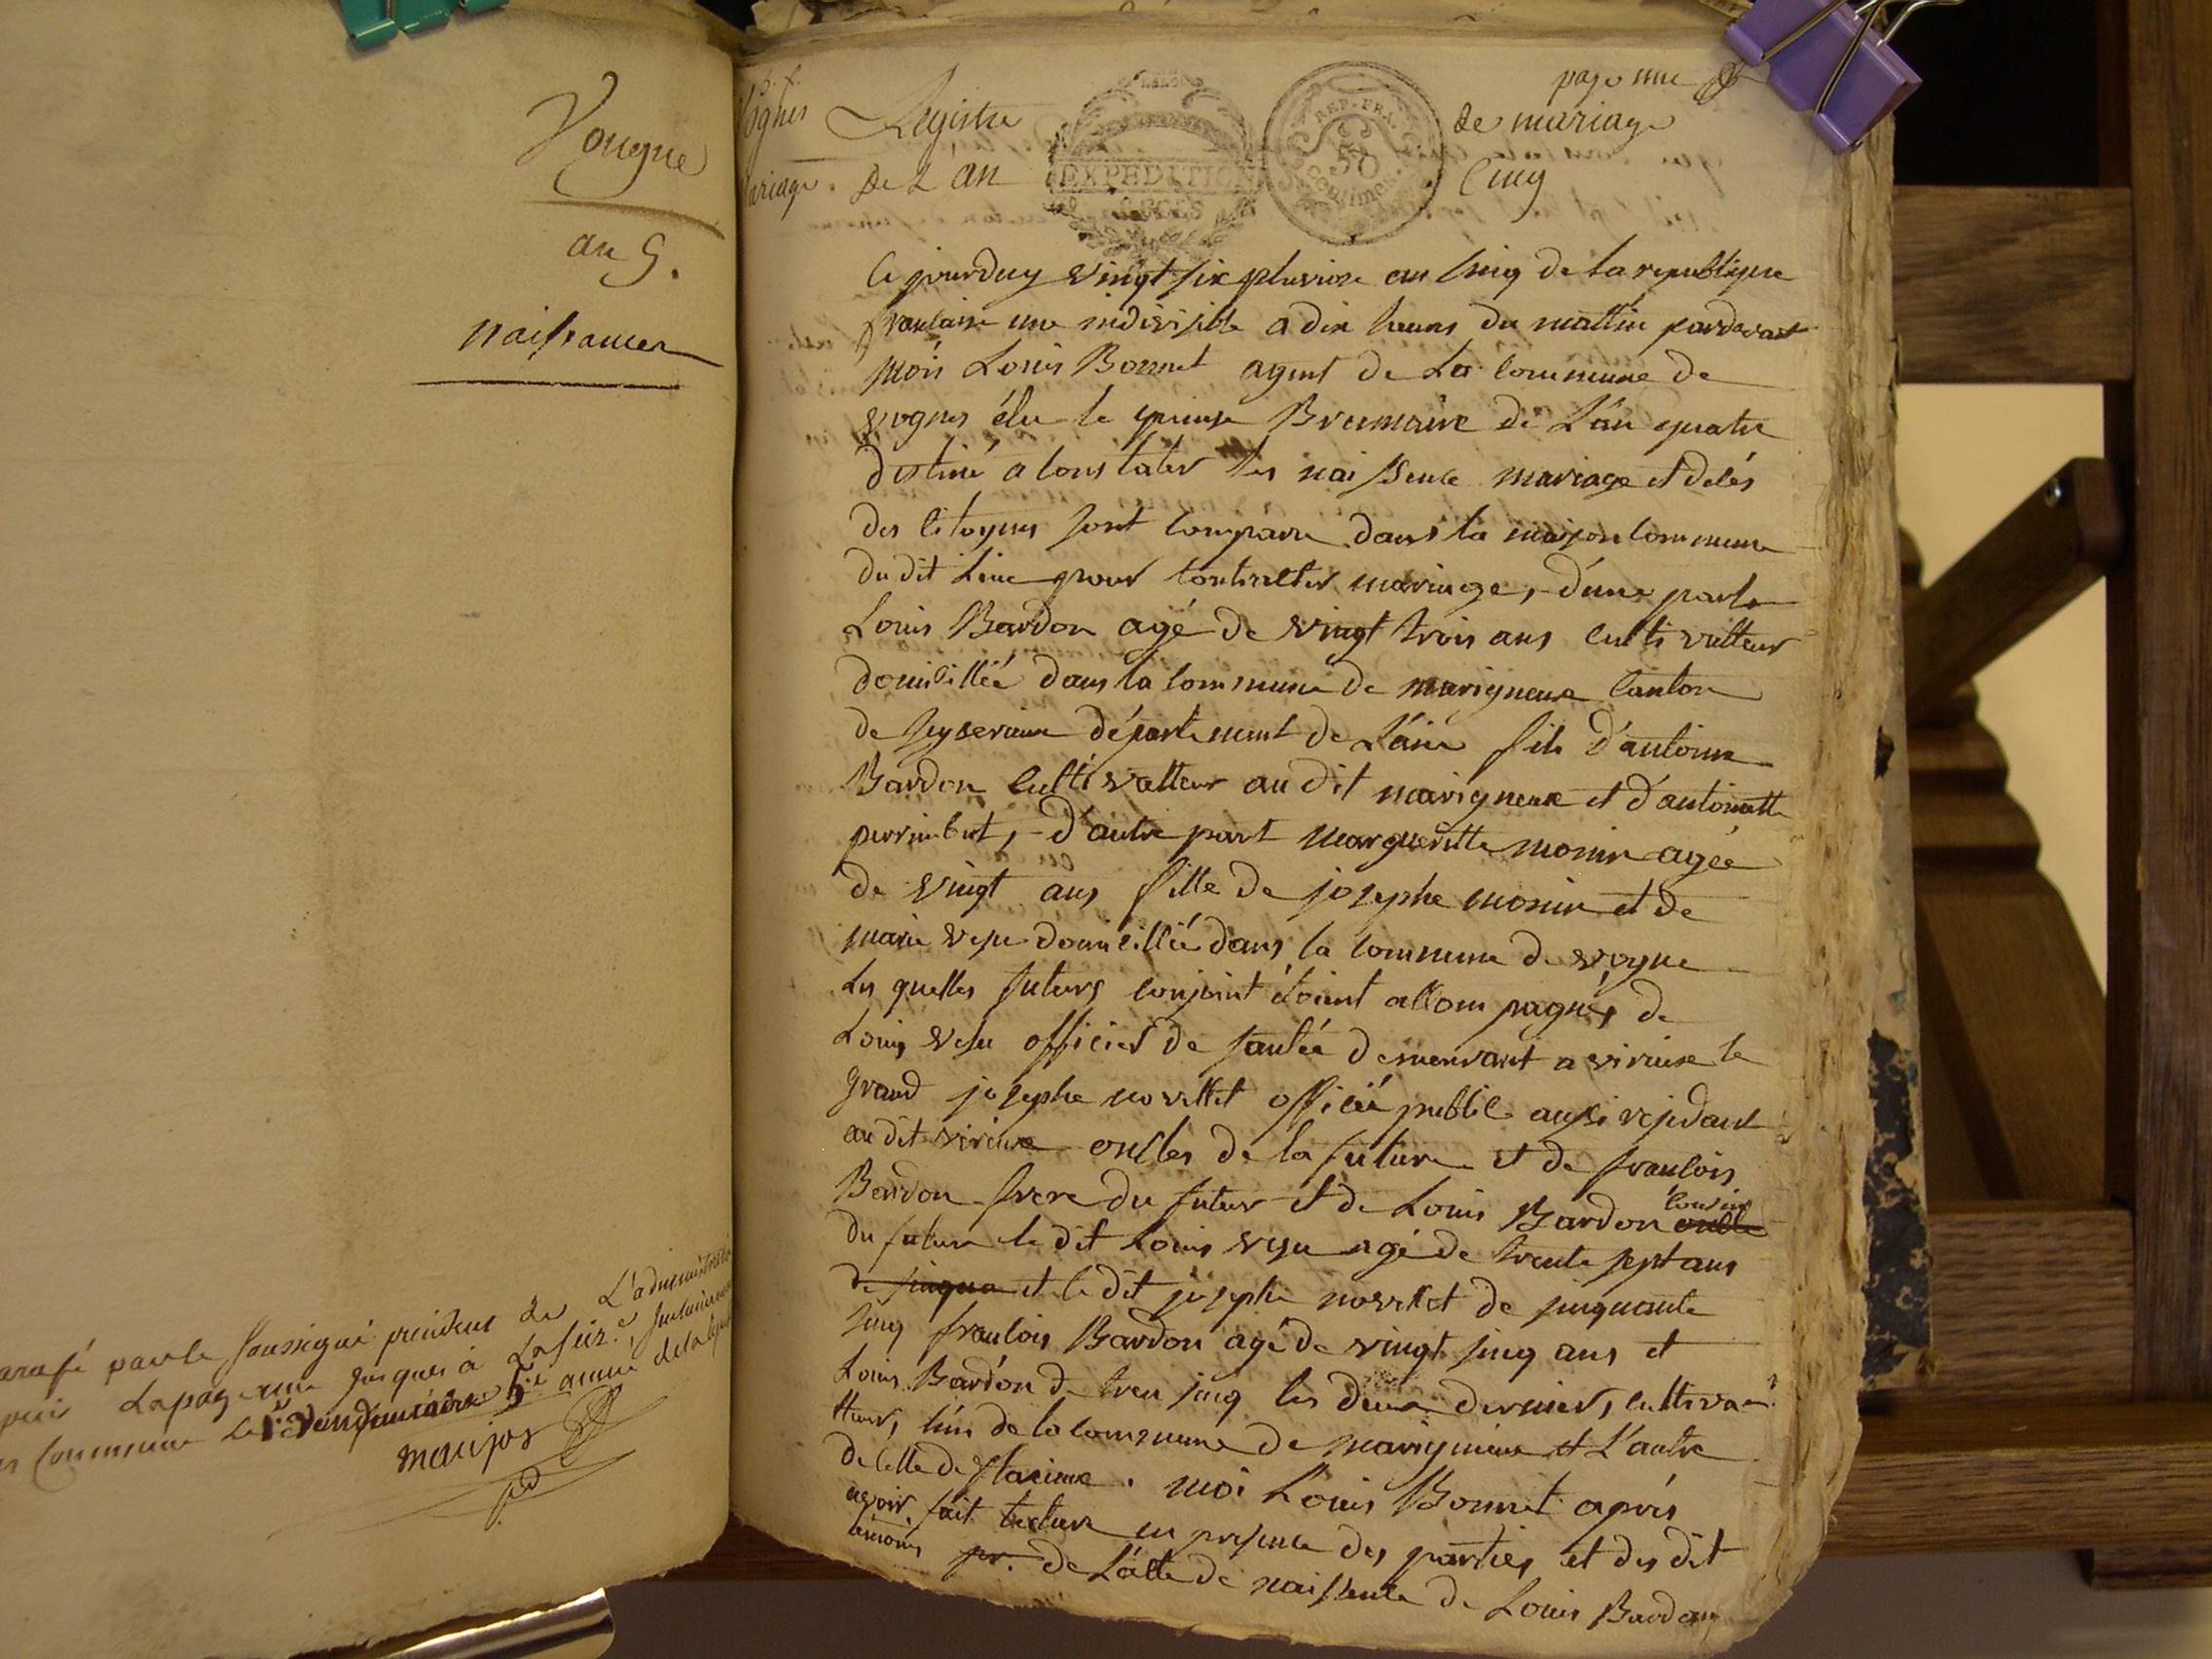 Vougne
an 5.
naissances
parafé par le soussigné président de L'administration
depuis la page une jusques à La six.e
Commune Le 1.er Vendemiaire 5.e année de la
maujot
page une
Registre de mariage
mariage. De L'an Cinq
EXPEDITION
REP. FRA.
50
centimes
Ce jourduy vingt six pluviose an Cinq de la republique
francaise une indivisible a dix heures du mattin pardevant
moi Louis Bonnet agent de La Commune de
vognes élu le quinse Brumaire de L'an quatre
destiné a Constater les naissence mariage et délés
des Citoyens sont Comparu dans la maison Commune
du dit Lieu pour Contracter mariage, d'une part
Louis Bardon agé de vingt trois ans Cultivatteur
domicillié dans la Commune de marigneux Canton
de seyserieux département de L'ain fils d'antoine
Bardon Cultivatteur au dit marigneux et d'antoinette
perrinbert, d'autre part margueritte monin agée
de vingt ans fille de josephe monin et de
marie vesu domicilliée dans la Commune de vogne
Les quelles futurs Conjoint étoient accompagnés de
Louis vesu officier de santée demeurant a virieux le
grand josephe novellet officié public aussi residant
au dit virieux oncles de la future et de francois
Bardon frere du futur et de Louis Bardon oncle cousin
du future le dit Louis vesu agé de trente sept ans
de sinqua et le dit josephe novellet de sinquante
sinq francois Bardon agé de vingt sinq ans et
Louis Bardon de tren sinq les deux derniers, Cultiva
tteurs, L'un de la Commune de marignieux et L'autre
de Celle de flaxieux. moi Louis Bonnet après
avoir fait Lecture en presence des parties et des dit
temoins pr. de L'acte de naissence de Louis Bardon